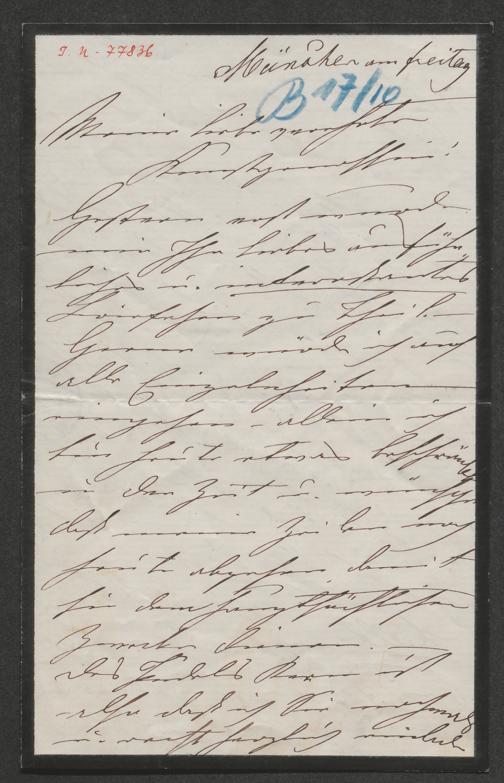 I. N. 77836
München am freitag
B 17/10
Meine liebe verehrte
Kunstgenossin!
Gestern erst wurde
mir Ihr liebes ausführ
liches u. interessantes
Briefchen zu Theil. –
Gerne würde ich auf
alle Einzelnheiten
eingehen – allein ich
bin heute etwas beschränkt
in der Zeit u. wünsche
daß meine Zeilen noch
heute abgehen damit
sie dem hauptsächlichsten
Zwecke dienen. –
Des Pudels Kern ist
also daß ich Sie nochmals
u. recht herzlich einlade